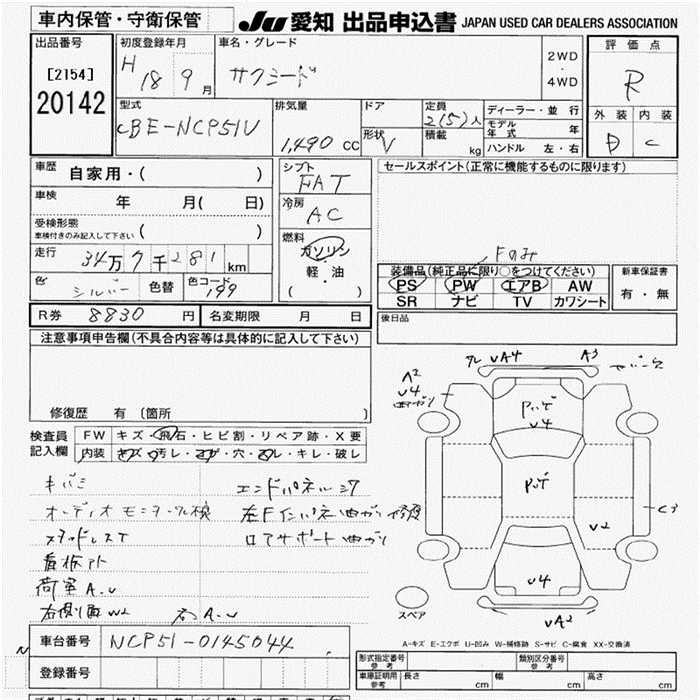 車内保管・守衛保管
JU 愛知 出品申込書 JAPAN USED CAR DEALERS ASSOCIATION
出品番号
[2154]
20142
初度登録年月
H 18 9月
車名・グレード
サクシード
2WD
・
4WD
評価点
R
外装 内装
D C
型式
CBE-NCP51V
排気量
1,490 cc
ドア
形状 V
定員
2(5)人
積載 kg
ディーラー・並行
モデル年式 年
ハンドル 左・右
車歴
自家用・( )
車検
年 月( 日)
受検形態
車検付きのみ記入して下さい ( )
走行
34万7千281km
色
シルバー
色替
色コード
199
シフト
FAT
冷房
AC
燃料
ガソリン
軽・油
( )
セールスポイント(正常に機能するものに限ります)
Fのみ
装備品(純正品に限り○をつけてください)
PS PW エアB AW
SR ナビ TV カワシート
新車保証書
有・無
R券 8830 円
名変期限 月 日
後日品
注意事項申告欄(不具合内容等は具体的に記入して下さい)
修復歴 有〔箇所 〕
検査員
記入欄
FW キズ・飛石・ヒビ割・リペア跡・X要
内装 キズ・汚レ・コゲ・穴・スレ・キレ・破レ
キバミ
エンドパネルシワ
オーディオモニター欠検
左Fインパネ曲がり修復
スタッドレスT
ロアサポート曲がり
看板アト
荷室A.U
右側面W2
右A.U
車台番号 NCP51-0145044
登録番号
UA4
A3
A2
U4
U4
U2
C3
U4
UA2
スペア
A-キズ E-エクボ U-凹み W-補修跡 S-サビ C-腐食 XX-交換済
形式指定番号
参考
類別区分番号
参考
車庫証明用
参考
長さ cm
幅 cm
高さ cm